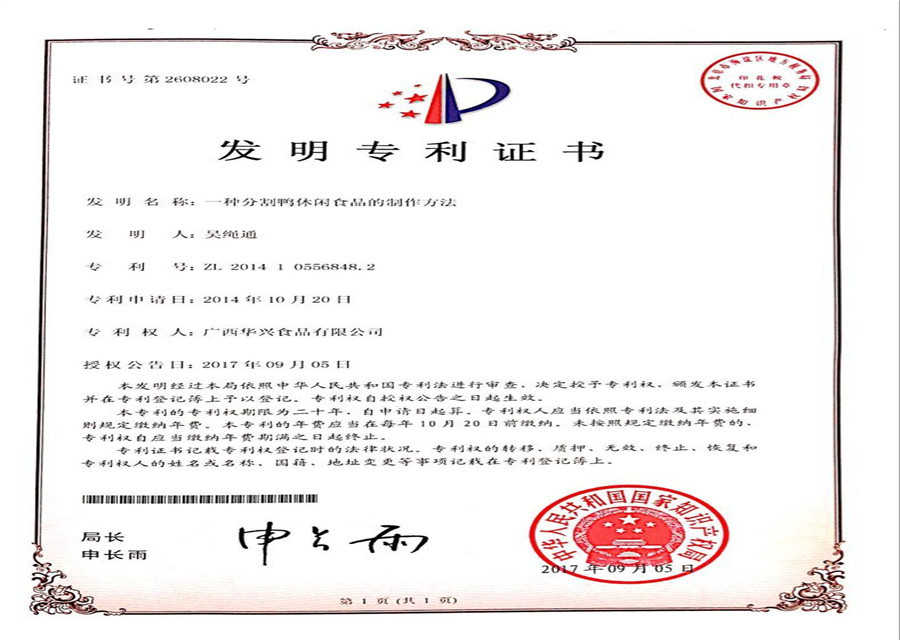 证书号第2608022号
印花税
代扣专用章
发明专利证书
发 明 名 称：一种分割鸭休闲食品的制作方法
发 明 人：吴绳通
专 利 号：ZL 2014 1 0556848.2
专利申请日：2014年10月20日
专 利 权 人：广西华兴食品有限公司
授权公告日：2017年09月05日
本发明经过本局依照中华人民共和国专利法进行审查，决定授予专利权，颁发本证书
并在专利登记簿上予以登记。专利权自授权公告之日起生效。
本专利的专利权期限为二十年，自申请日起算。专利权人应当依照专利法及其实施细
则规定缴纳年费。本专利的年费应当在每年10月20日前缴纳。未按照规定缴纳年费的，
专利权自应当缴纳年费期满之日起终止。
专利证书记载专利权登记时的法律状况。专利权的转移、质押、无效、终止、恢复和
专利权人的姓名或名称、国籍、地址变更等事项记载在专利登记簿上。
局长
申长雨
申长雨
中华人民共和国国家知识产权局
2017年09月05日
第1页（共1页）